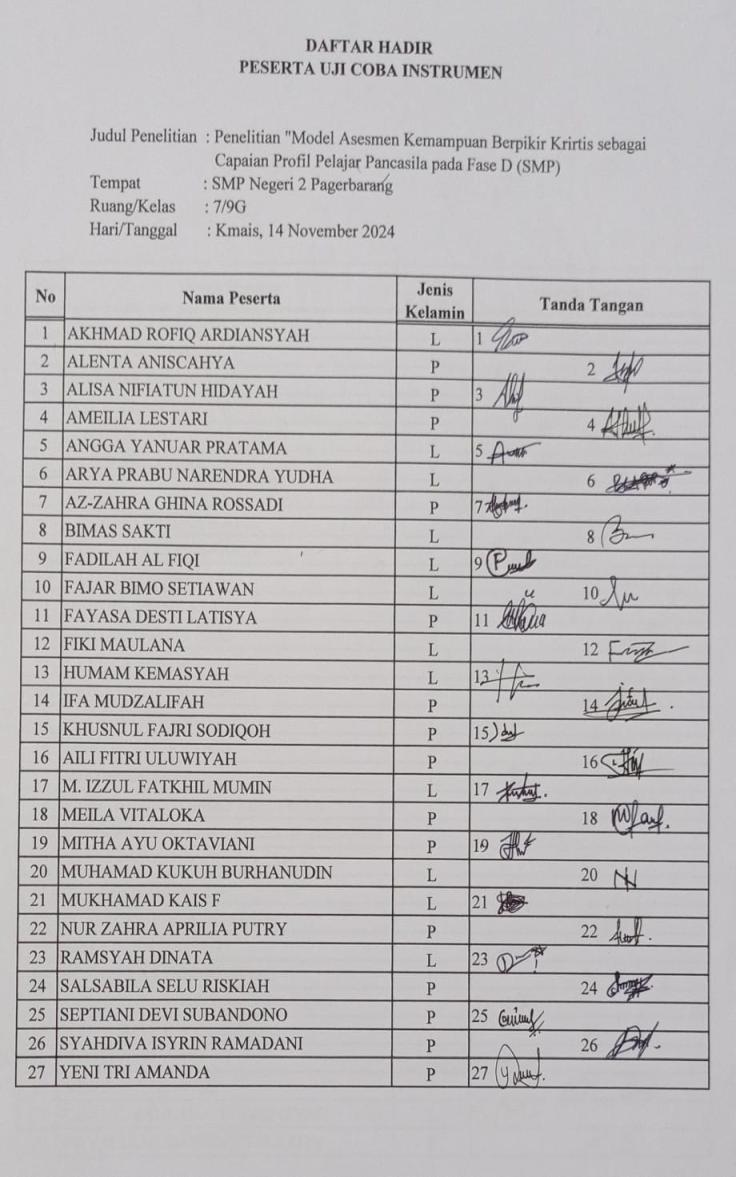 DAFTAR HADIR
PESERTA UJI COBA INSTRUMEN
Judul Penelitian : Penelitian "Model Asesmen Kemampuan Berpikir Krirtis sebagai
Capaian Profil Pelajar Pancasila pada Fase D (SMP)
Tempat : SMP Negeri 2 Pagerbarang
Ruang/Kelas : 7/9G
Hari/Tanggal : Kmais, 14 November 2024
No Nama Peserta Jenis Kelamin Tanda Tangan
1 AKHMAD ROFIQ ARDIANSYAH L 1
2 ALENTA ANISCAHYA P 2
3 ALISA NIFIATUN HIDAYAH P 3
4 AMEILIA LESTARI P 4
5 ANGGA YANUAR PRATAMA L 5
6 ARYA PRABU NARENDRA YUDHA L 6
7 AZ-ZAHRA GHINA ROSSADI P 7
8 BIMAS SAKTI L 8
9 FADILAH AL FIQI L 9
10 FAJAR BIMO SETIAWAN L 10
11 FAYASA DESTI LATISYA P 11
12 FIKI MAULANA L 12
13 HUMAM KEMASYAH L 13
14 IFA MUDZALIFAH P 14
15 KHUSNUL FAJRI SODIQOH P 15
16 AILI FITRI ULUWIYAH P 16
17 M. IZZUL FATKHIL MUMIN L 17
18 MEILA VITALOKA P 18
19 MITHA AYU OKTAVIANI P 19
20 MUHAMAD KUKUH BURHANUDIN L 20
21 MUKHAMAD KAIS F L 21
22 NUR ZAHRA APRILIA PUTRY P 22
23 RAMSYAH DINATA L 23
24 SALSABILA SELU RISKIAH P 24
25 SEPTIANI DEVI SUBANDONO P 25
26 SYAHDIVA ISYRIN RAMADANI P 26
27 YENI TRI AMANDA P 27